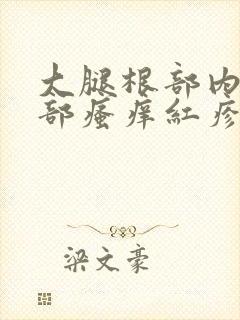 大腿根部内
部瘙痒红疹
梁文豪